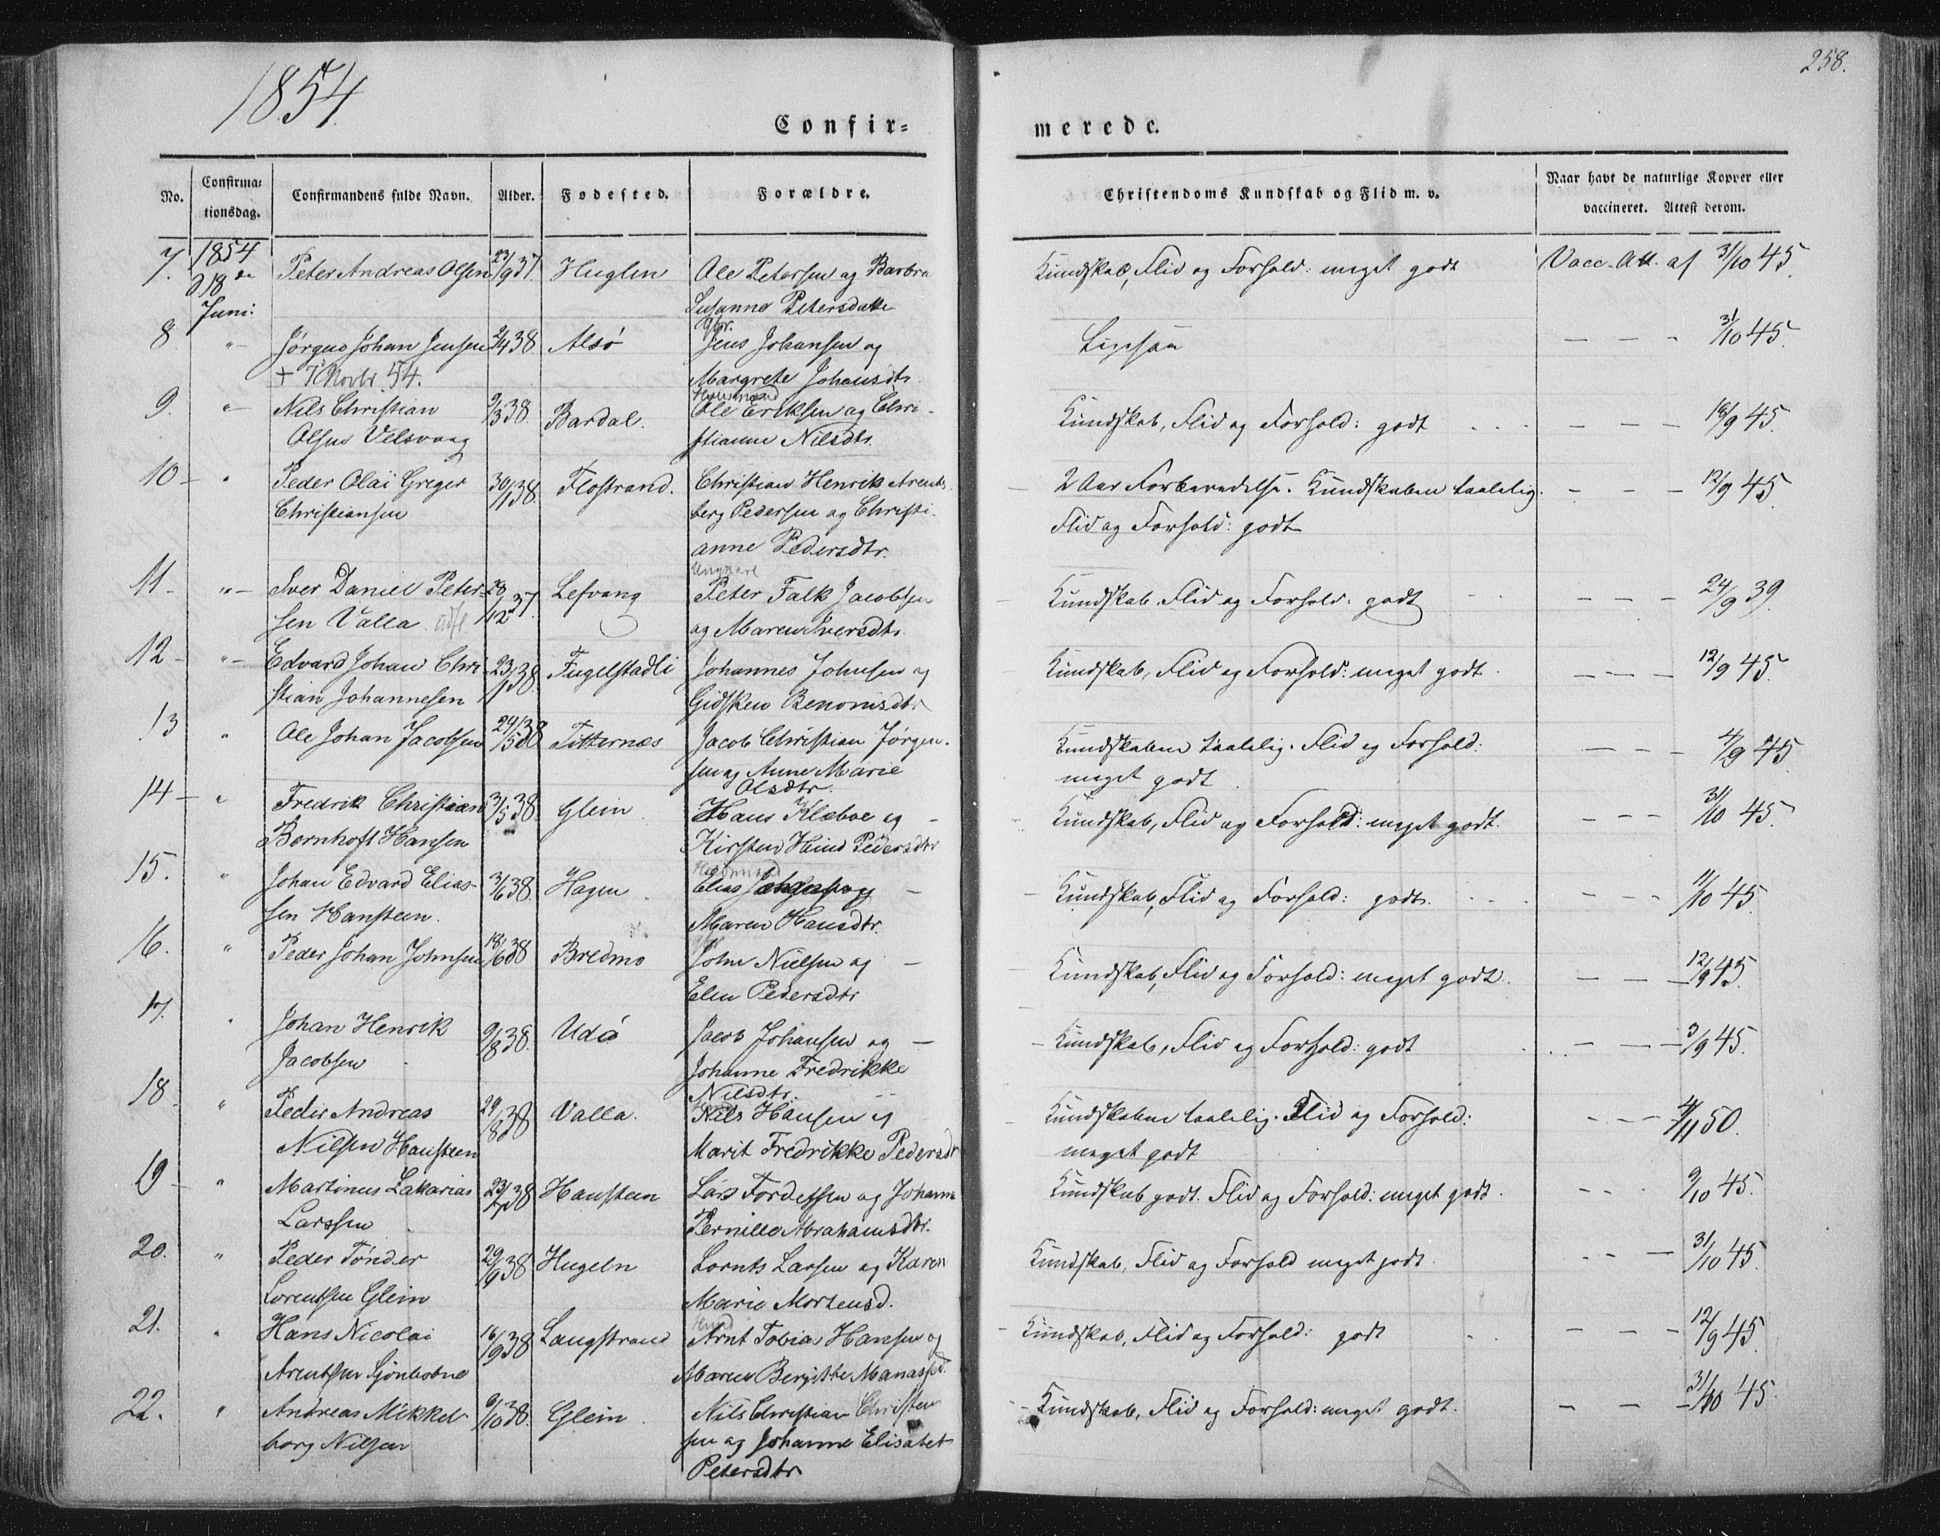 1854
258.
Confir=
merede.
No. Confirma=tionsdag. Confirmandens fulde Navn. Alder. Fødested. Forældre. Christendoms Kundskab og Flid m. v. Naar havt de naturlige Kopper eller vaccineret. Attest derom.
7. 1854 Peter Andreas Olsen 23/9 37. Huglen Ole Petersen og Barbra Kundskab, Flid og Forhold: meget godt Vacc. Att. af 31/10 45.
18de Juni: Susanna Petersdatter
8 " Jørgen Johan Jensen 2/4 38 Alsø Jens Johansen og Ligesaa 31/10 45.
+ Novbr. 54. Margrete Johansdtr.
9. " Nils Christian 9/3 38. Bardal. Ole Eriksen og Chri- Kundskab, Flid og Forhold: godt 18/9 45.
Olsen Velsvaag stianne Nilsdtr.
10 " Peder Olai Greger 30/1 38. Flostrand. Christian Henrik Arent- 2 Aar Forberedelse. Kundskaben taalelig. 12/9 45.
Christiansen berg Pedersen og Christi- Flid og Forhold: godt
anne Pedersdtr.
11. " Iver Daniel Peter- 28/12 37. Lefvang Peter Falk Jacobsen Kundskab, Flid og Forhold: godt 24/9 39.
sen Valla udfl. og Maren Iversdtr.
12 " Edvard Johan Chri- 23/1 38. Fugelstadli Johannes Johnsen og Kundskab, Flid og Forhold: meget godt. 12/9 45.
stian Johannesen Gidsken Benonisdtr
13 " Ole Johan Jacobsen 24/5 38 Titternæs Jacob Christian Jørgen- Kundskaben taalelig. Flid og Forhold: 4/9 45
sen og Anne Marie meget godt.
Olsdtr.
14 " Fredrik Christian 3/5 38. Glein Hans Klæboe og Kundskab, Flid og Forhold: meget godt. 31/10 45.
Bernhoft Hansen Kirsten Heind Pedersdtr
15. " Johan Edvard Elias- 3/6 38. Hagen Elias og Kundskab, Flid og Forhold: godt. 11/10 45.
sen Hansteen. Maren Hansdtr.
16. " Peder Johan Johnsen 18/6 38 Bredmo John Nielsen og Kundskab, Flid og Forhold: meget godt. 12/9 45.
Elen Pedersdtr
17. " Johan Henrik 9/8 38. Udø Jacob Johansen og Kundskab, Flid og Forhold: godt 3/9 45.
Jacobsen Johanne Fredrikke
Nilsdtr.
18. " Peder Andreas 29/8 38 Valla. Nils Hansen og Kundskaben taalelig. Flid og Forhold: 4/11 50.
Nilsen Hansteen Marit Fredrikke Pedersdtr meget godt
19 " Martinus Zakarias 38 Hansteen Lars Fordelsen og Johanne Kundskab godt. Flid og Forhold: meget godt. 9/10 45.
Larssen Pernille Abrahamsdtr.
20. " Peder Tønder 29/9 38 Hugeln Lornts Larsen og Karen Kundskab, Flid og Forhold meget godt. 31/10 45.
Lorentsen Glein Marie Mortensd.
21. " Hans Nicolai 16/9 38 Langstrand Arnt Tobias Hansen og Kundskab, Flid og Forhold: godt 12/9 45.
Arentsen Sjonbotne Maren Bergitte Manassesd.
22. " Andreas Mikkel- 9/10 38. Glein Nils Christian Christen- Kundskab, Flid og Forhold: meget godt. 31/10 45.
borg Nilsen sen og Johanne Elisabet
Petersdtr